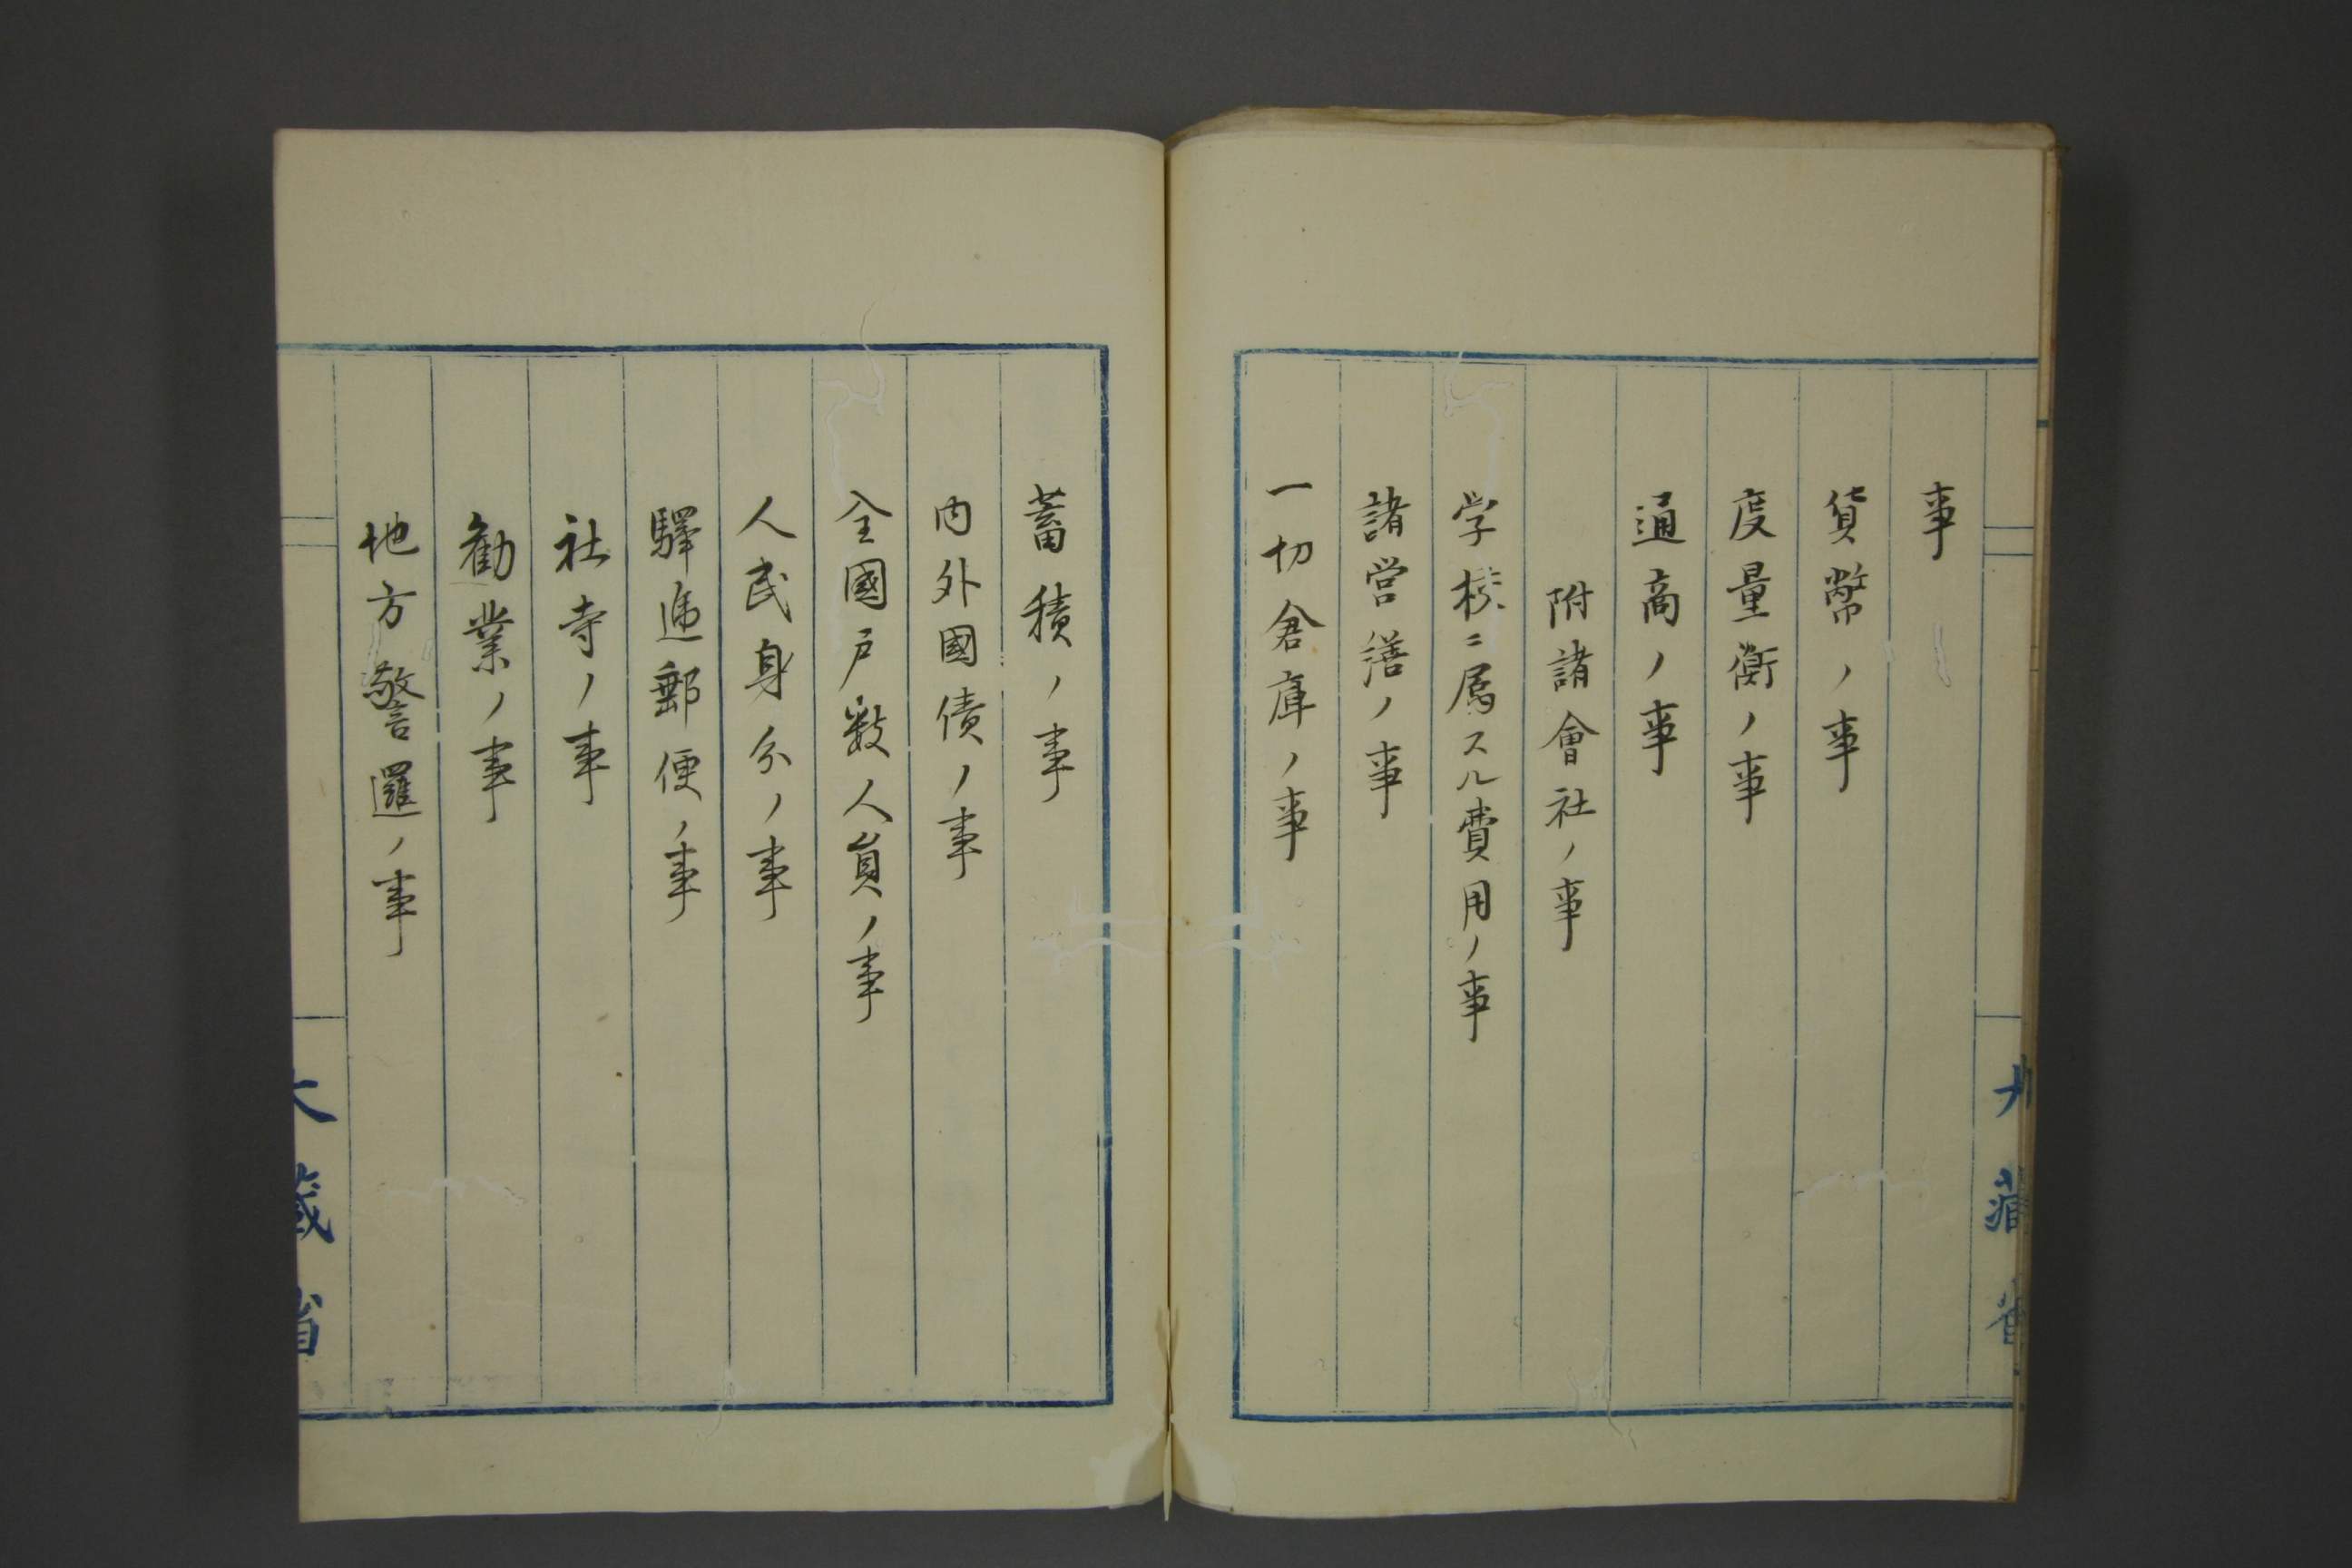 事
貨幣ノ事
度量衡ノ事
通商ノ事
附諸會社ノ事
学校ニ属スル費用ノ事
諸営繕ノ事
一切倉庫ノ事
蓄積ノ事
内外國債ノ事
全國戸数人員ノ事
人民身分ノ事
驛逓郵便ノ事
社寺ノ事
勧業ノ事
地方警邏ノ事
大藏省
大藏省